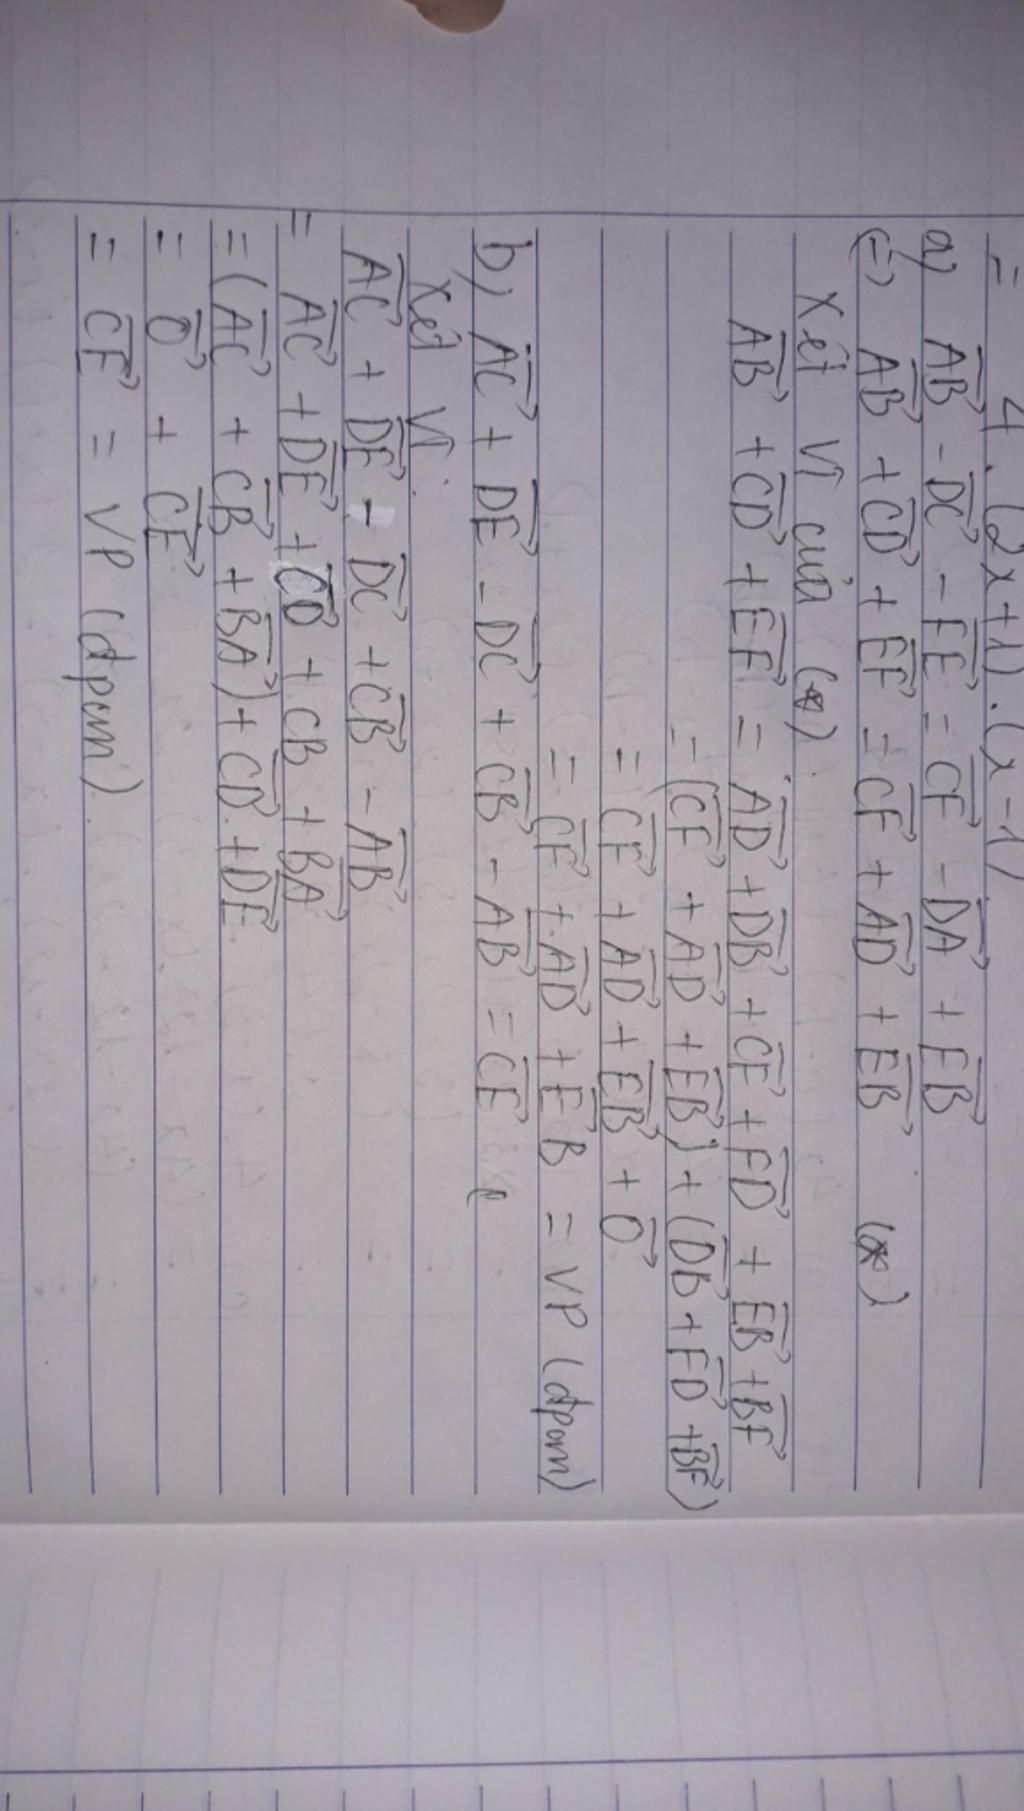 = 4.(2x+1).(x-1)
a) AB⃗ - DC⃗ - FE⃗ = CF⃗ - DA⃗ + EB⃗
(=) AB⃗ + CD⃗ + EF⃗ = CF⃗ + AD⃗ + EB⃗ (*)
Xét VT của (*).
AB⃗ + CD⃗ + EF⃗ = AD⃗ + DB⃗ + CF⃗ + FD⃗ + EB⃗ + BF⃗
= (CF⃗ + AD⃗ + EB⃗) + (DB⃗ + FD⃗ + BF⃗)
= CF⃗ + AD⃗ + EB⃗ + O⃗
= CF⃗ + AD⃗ + EB⃗ = VP (đpcm)
b) AC⃗ + DE⃗ - DC⃗ + CB⃗ - AB⃗ = CE⃗
Xét VT.
AC⃗ + DE⃗ - DC⃗ + CB⃗ - AB⃗
= AC⃗ + DE⃗ + CD⃗ + CB + BA⃗
= (AC⃗ + CB⃗ + BA⃗) + CD⃗ + DE⃗
= O⃗ + CE⃗
= CE⃗ = VP (đpcm)